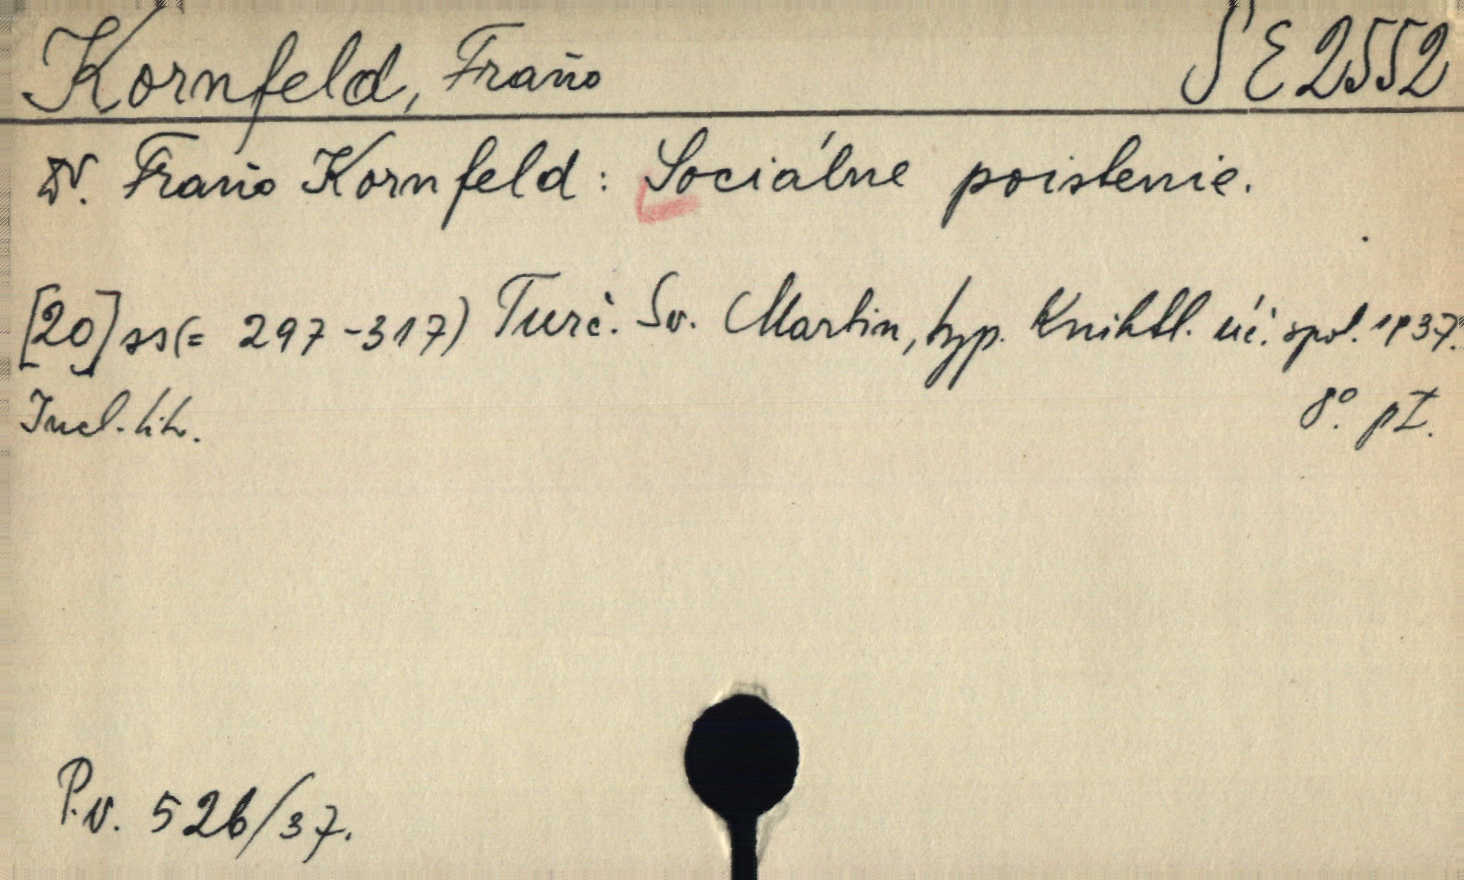 Kornfeld, Fraňo SE 2552
Dr. Fraňo Kornfeld: Sociálne poistenie.
[20] ss (= 297-317) Turč. Sv. Martin, typ. Knihtl. úč. spol. 1937.
Incl. lit. 8°. pI.
P.v. 526/37.